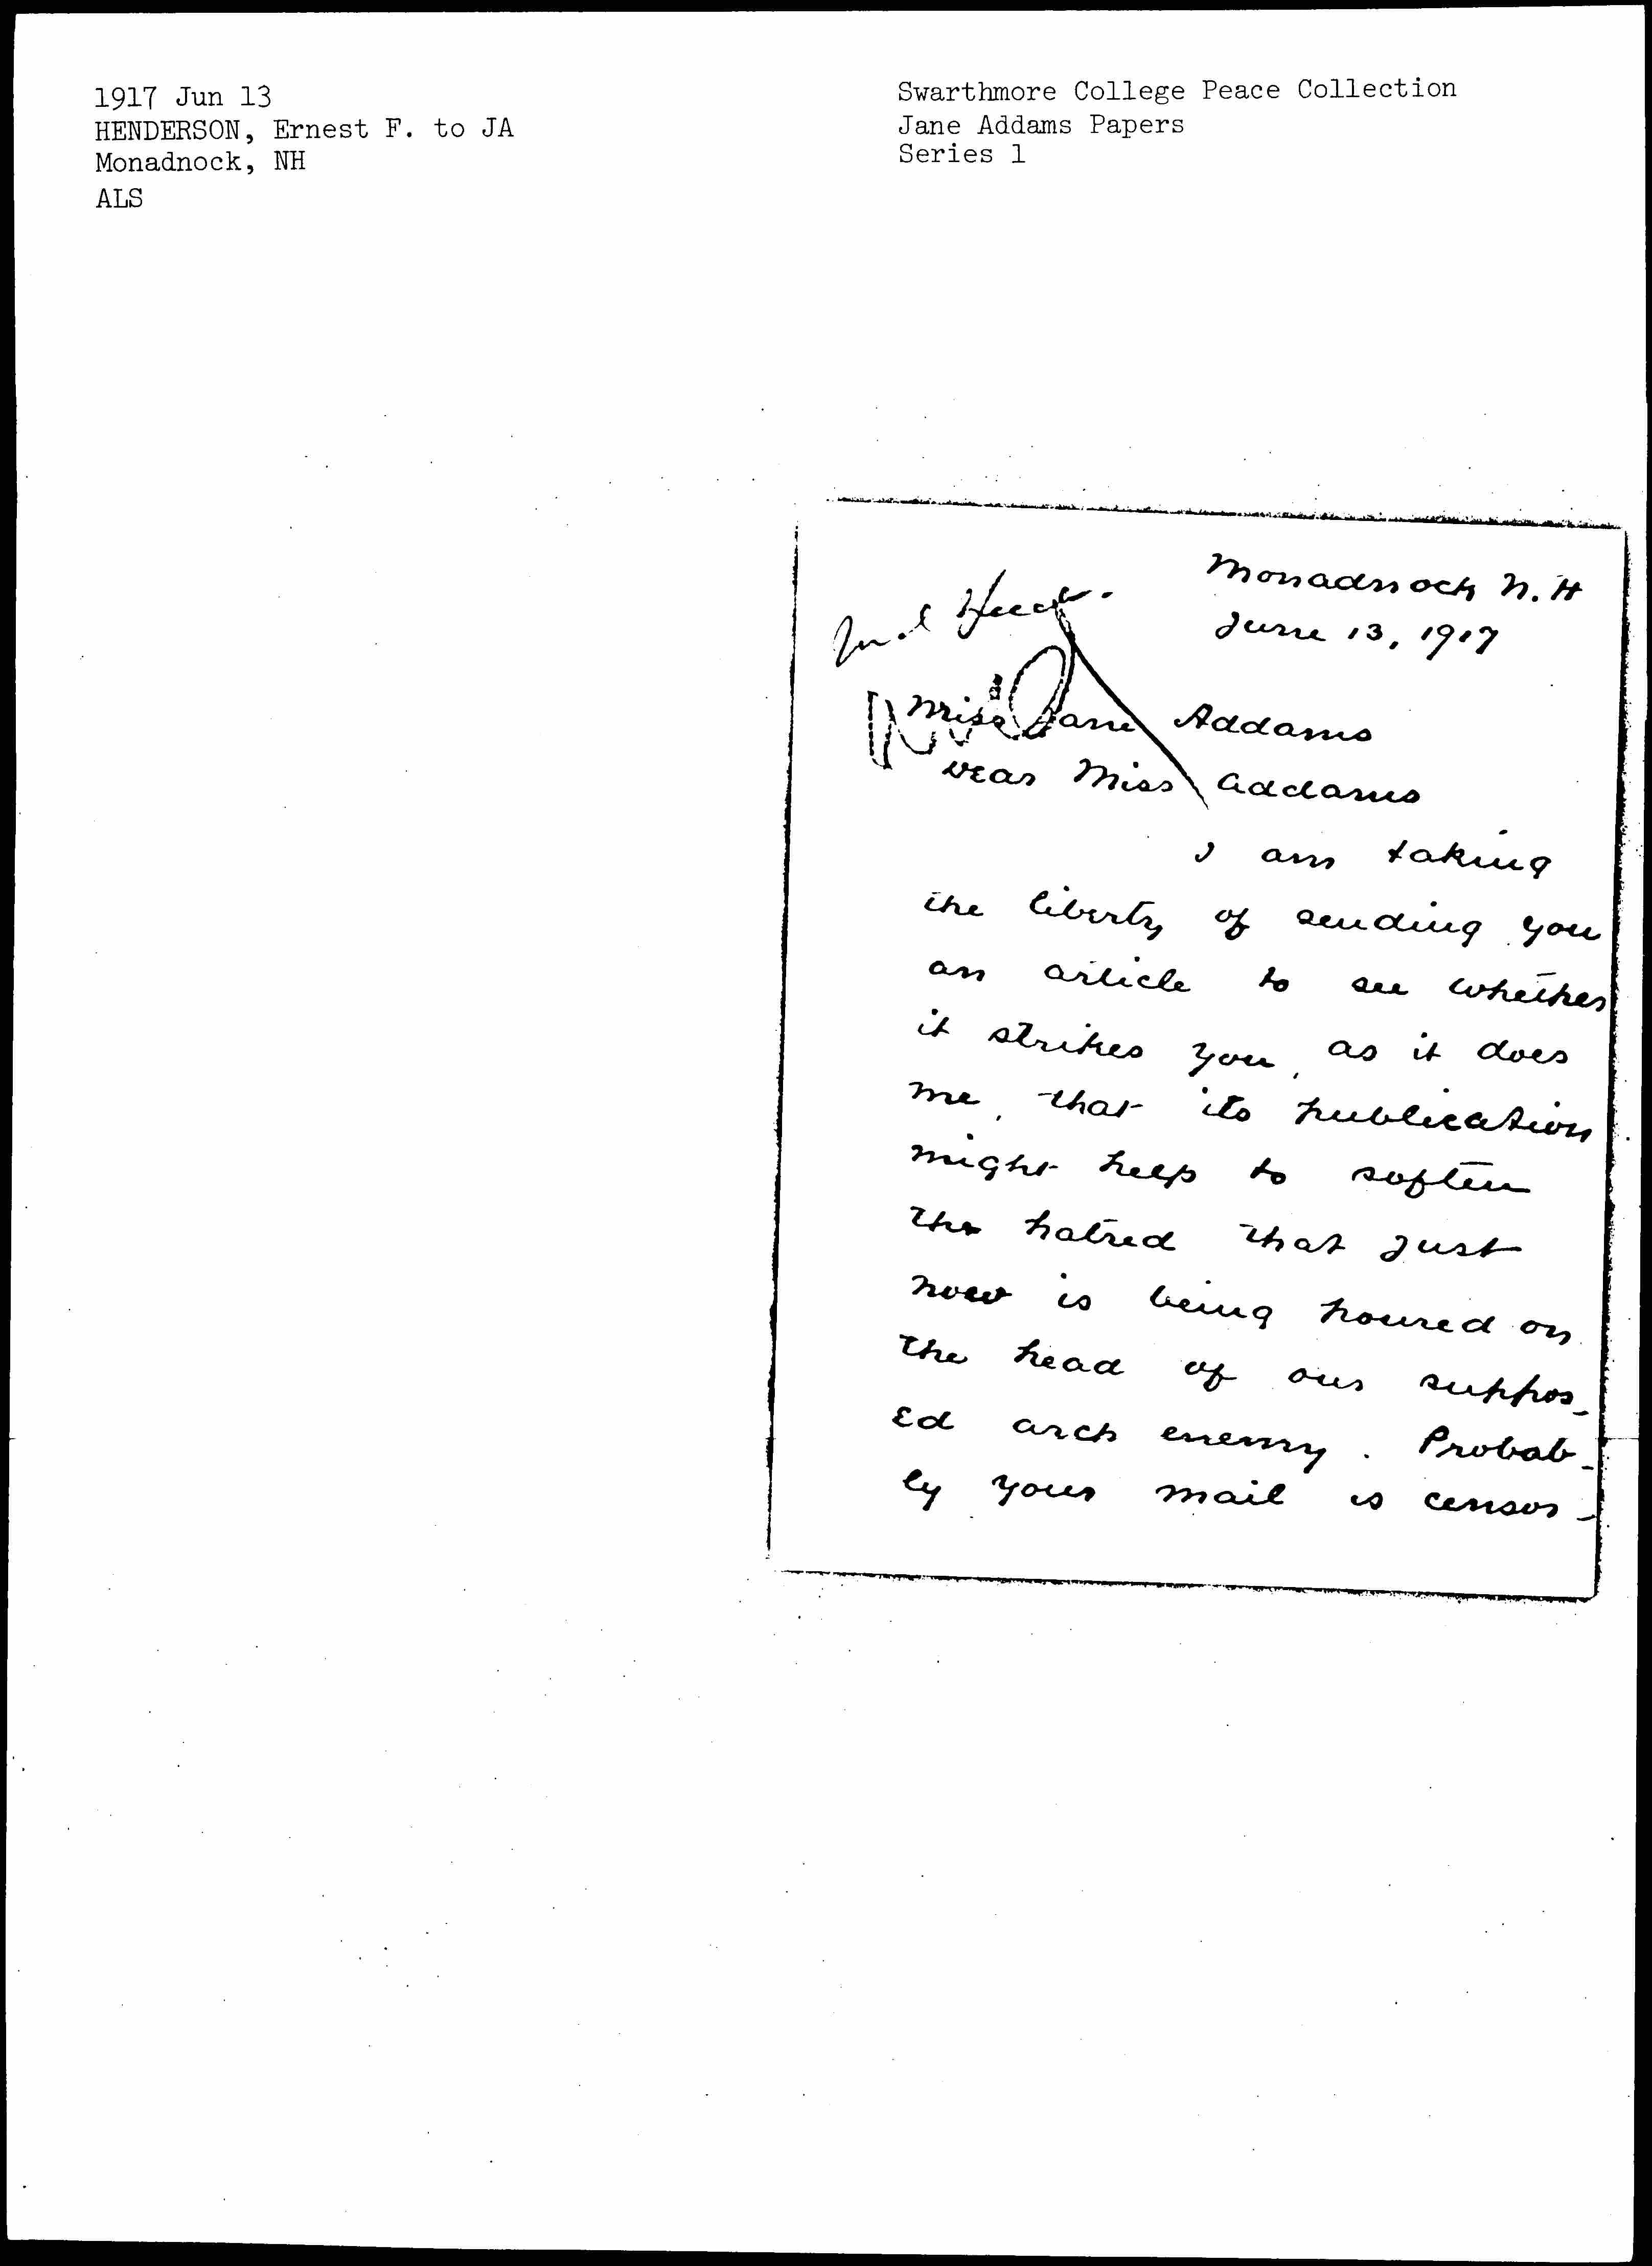 1917 Jun 13
HENDERSON, Ernest F. to JA
Monadnock, NH
ALS
Swarthmore College Peace Collection
Jane Addams Papers
Series 1
Monadnock N.H
June 13, 1917
Miss Jane Addams
Dear Miss Addams
I am taking
the liberty of sending you
an article to see whether
it strikes you, as it does
me, that its publication
might help to soften
the hatred that just
now is being poured on
the head of our suppos-
ed arch enemy. Probab-
ly your mail is censor-